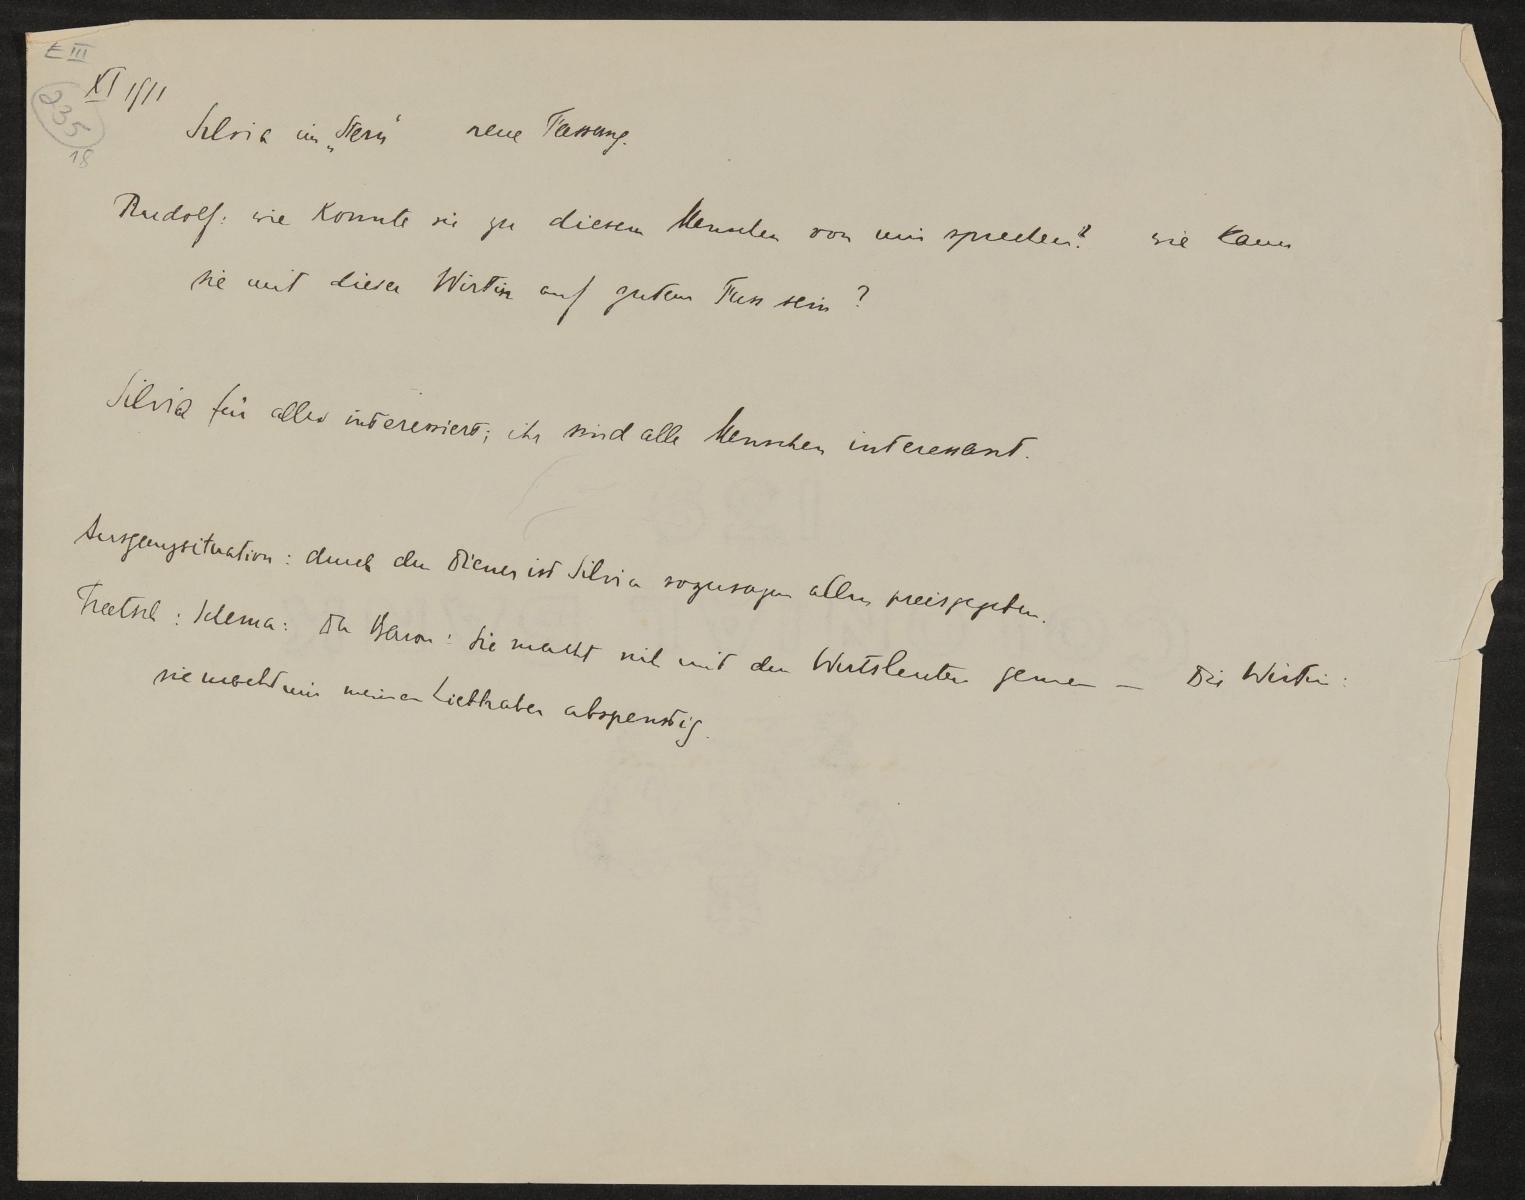 E III
XI 1911
235
18
Silvia im „Stern“ neue Fassung.
Rudolf: wie konnte sie zu diesem Menschen von mir sprechen? wie kann
sie mit dieser Wirtin auf gutem Fuss sein?
Silvia für alles interessiert; ihr sind alle Menschen interessant.
Ausgangssituation: durch den Diener ist Silvia sozusagen allen preisgegeben.
Tratsch: Schema: Der Baron: sie macht sich mit den Wirtsleuten gemein — Die Wirtin:
sie macht mir meinen Liebhaber abspenstig.